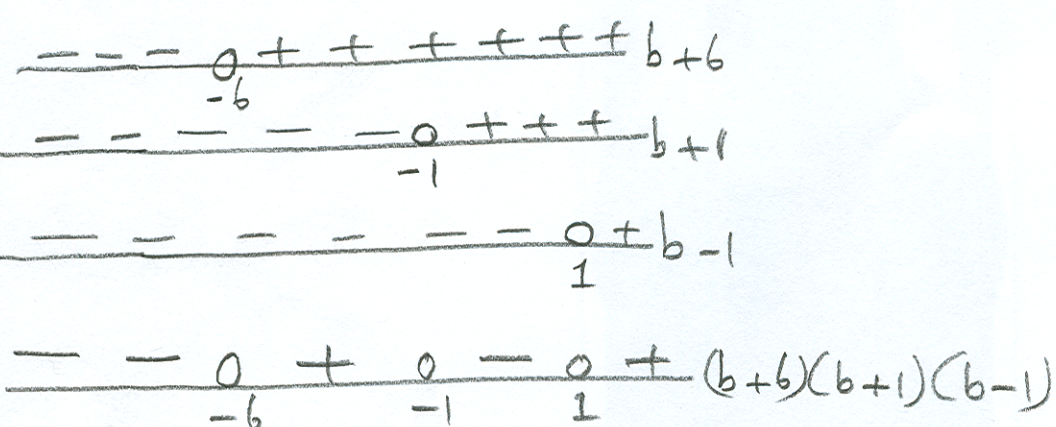 - - - 0 + + + + + + b+6
-6
- - - - - 0 + + + b+1
-1
- - - - - - 0 + b-1
1
- - 0 + 0 - 0 + (b+6)(b+1)(b-1)
-6 -1 1